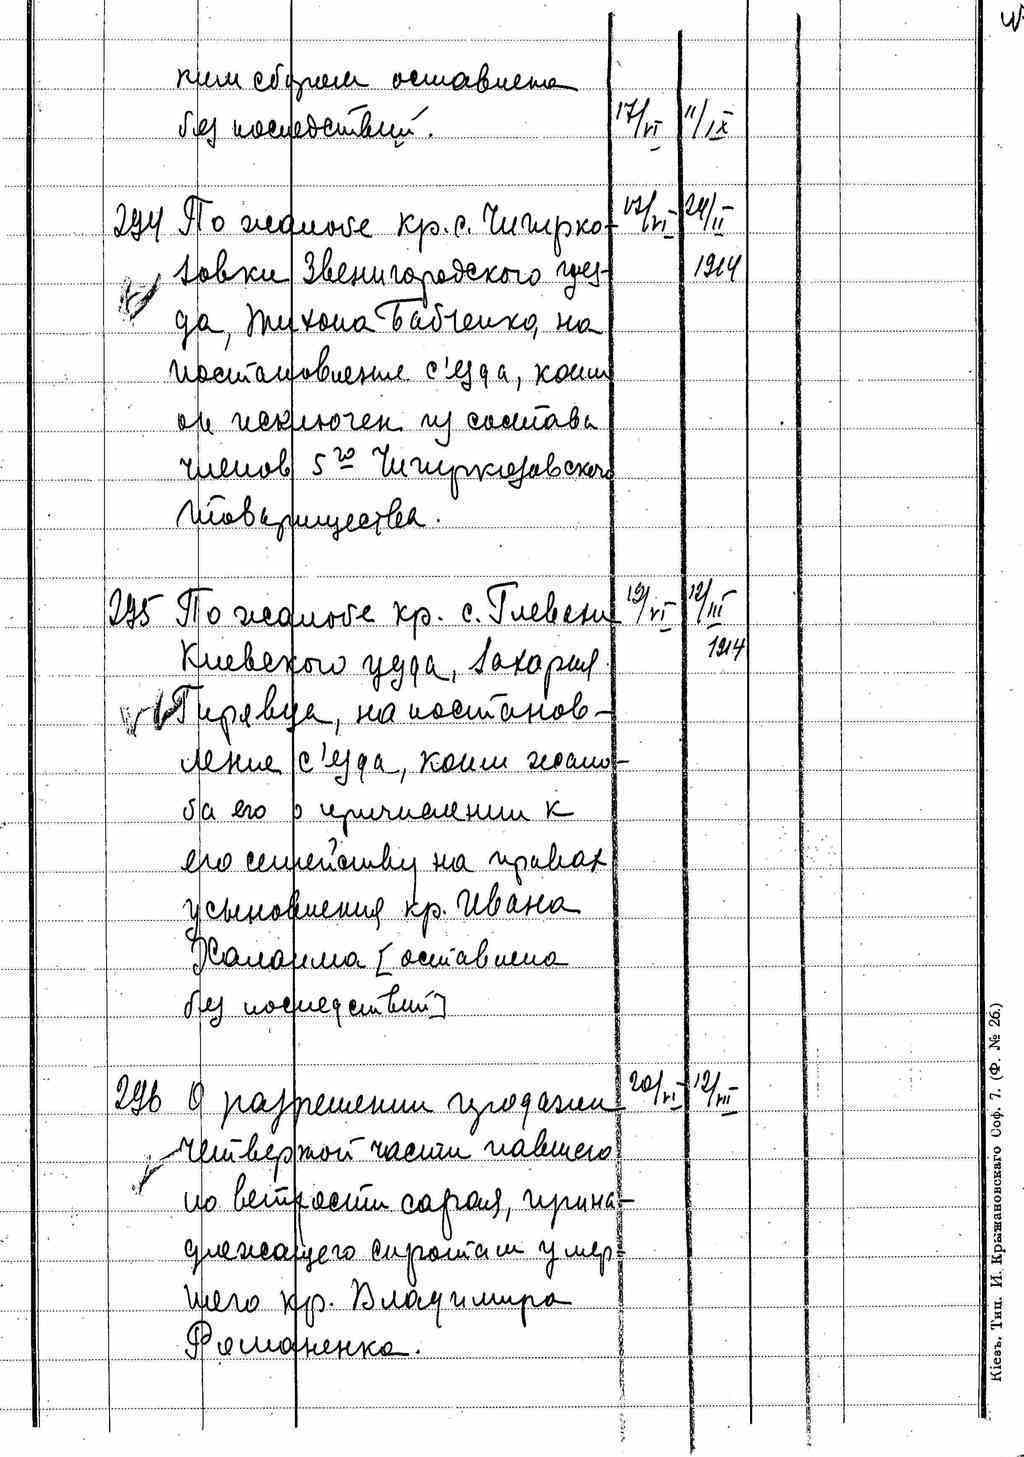 ким сбором оставлена
без последствий. 17/VI 11/IX
294 По жалобе кр. с. Чигирко- 17/VI 24/II
зовки Звенигородского уез- 1914
да, Тихона Бабченко, на
постановление с'езда, коим
он исключен из состава
членов 5го Чигиркозовского
товарищества.
295 По жалобе кр. с. Глевахи 19/VI 12/III
Киевского уезда, Захария 1914
Гирявца, на постанов-
ление с'езда, коим жало-
ба его о причислении к
его семейству на правах
усыновления кр. Ивана
[оставлена
без последствий]
296 О разрешении продажи 20/VI 12/VII
четвертой части павшего
по ветхости сарая, прина-
длежащего сиротам умер-
шего кр. Владимира
Романенка.
Кіевъ, Тип. И. Крыжановскаго Соф. 7. (Ф. № 26.)